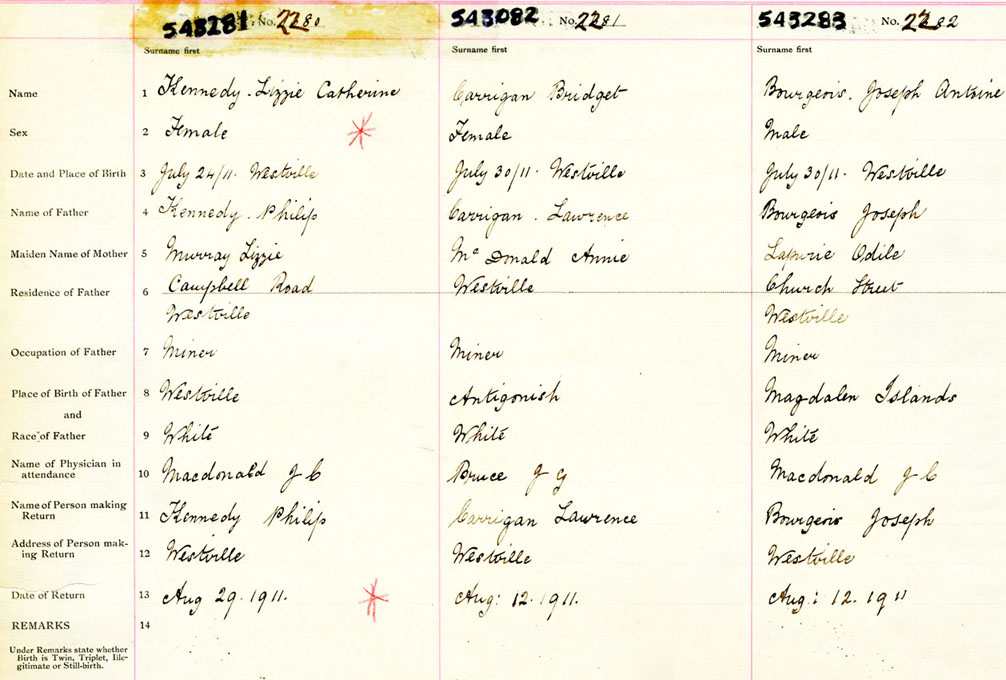 543281 No. 2280 543082 No. 2281 543283 No. 2282
Surname first Surname first Surname first
Name 1 Kennedy. Lizzie Catherine Carrigan Bridget Bourgeois. Joseph Antoine
Sex 2 Female Female Male
Date and Place of Birth 3 July 24/11. Westville July 30/11. Westville July 30/11. Westville
Name of Father 4 Kennedy. Philip Carrigan. Lawrence Bourgeois Joseph
Maiden Name of Mother 5 Murray Lizzie Mc Donald Annie Odile
Residence of Father 6 Campbell Road Westville Church Street
Westville Westville
Occupation of Father 7 Miner Miner Miner
Place of Birth of Father 8 Westville Antigonish Magdalen Islands
and
Race of Father 9 White White White
Name of Physician in
attendance 10 Macdonald J C Bruce J G Macdonald J C
Name of Person making
Return 11 Kennedy Philip Carrigan Lawrence Bourgeois Joseph
Address of Person mak-
ing Return 12 Westville Westville Westville
Date of Return 13 Aug 29. 1911. Aug: 12. 1911. Aug: 12. 1911
REMARKS 14
Under Remarks state whether
Birth is Twin, Triplet, Ille-
gitimate or Still-birth.